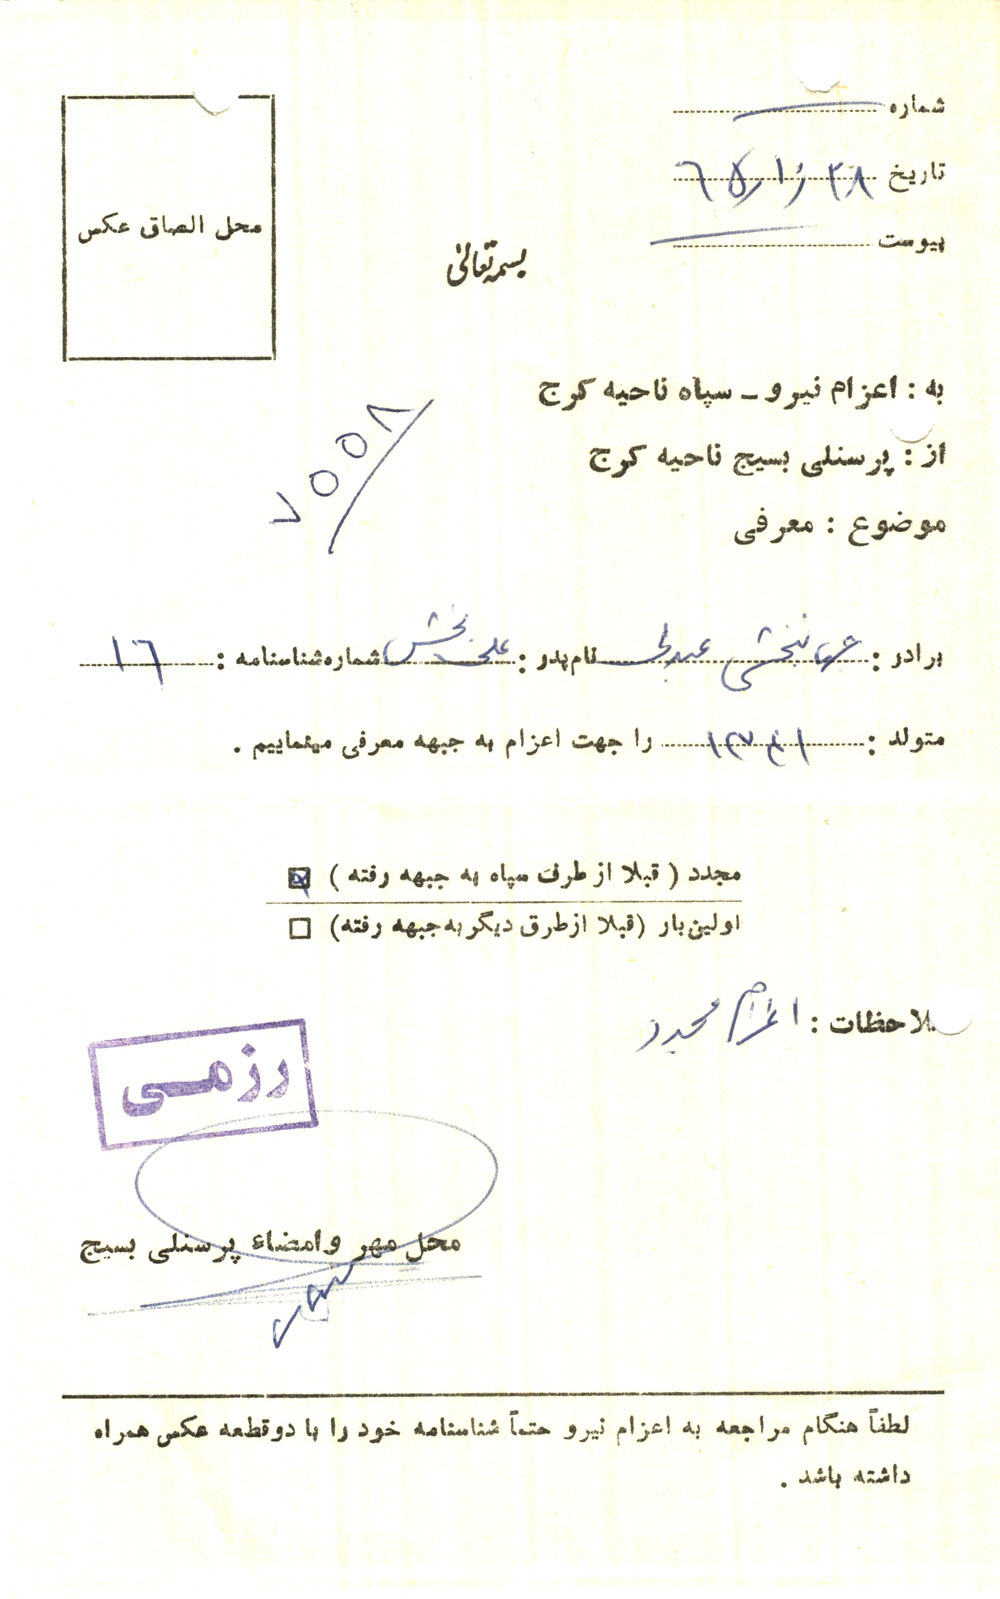 شماره
تاریخ ۲۸ ر ۱۰ ر ۶۵
پیوست
محل الصاق عکس
بسمه تعالی
به : اعزام نیرو - سپاه ناحیه کرج
از : پرسنلی بسیج ناحیه کرج
موضوع : معرفی
۷۰۰۵۸
برادر : جهانبخش عبدلی نام پدر : علی بخش شماره شناسنامه : ۱۶
متولد : ۱۳۴۱ را جهت اعزام به جبهه معرفی مینماییم .
مجدد ( قبلا از طرف سپاه به جبهه رفته )
اولین بار (قبلا از طرق دیگر به جبهه رفته)
ملاحظات : اعزام مجدد
رزمی
محل مهر و امضاء پرسنلی بسیج
لطفاً هنگام مراجعه به اعزام نیرو حتماً شناسنامه خود را با دو قطعه عکس همراه
داشته باشد .